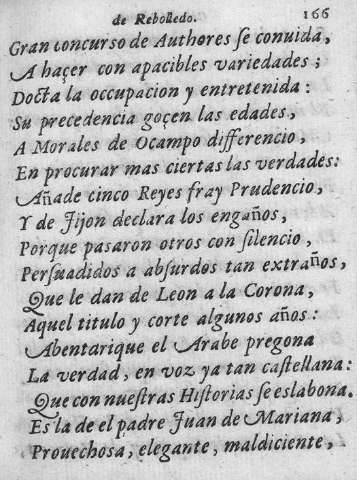 de Rebolledo. 166
Gran concurso de Authores ſe conuida,
A haçer con apacibles variedades;
Docta la occupacion y entretenida:
Su precedencia goçen las edades,
A Morales de Ocampo differencio,
En procurar mas ciertas las verdades:
Añade cinco Reyes fray Prudencio,
Y de Jijon declara los engaños,
Porque pasaron otros con ſilencio,
Perſuadidos a abſurdos tan extraños,
Que le dan de Leon a la Corona,
Aquel titulo y corte algunos años:
Abentarique el Arabe pregona
La verdad, en voz ya tan caſtellana:
Que con nueſtras Hiſtorias ſe eslabona.
Es la de el padre Juan de Mariana,
Prouechosa, elegante, maldiciente,